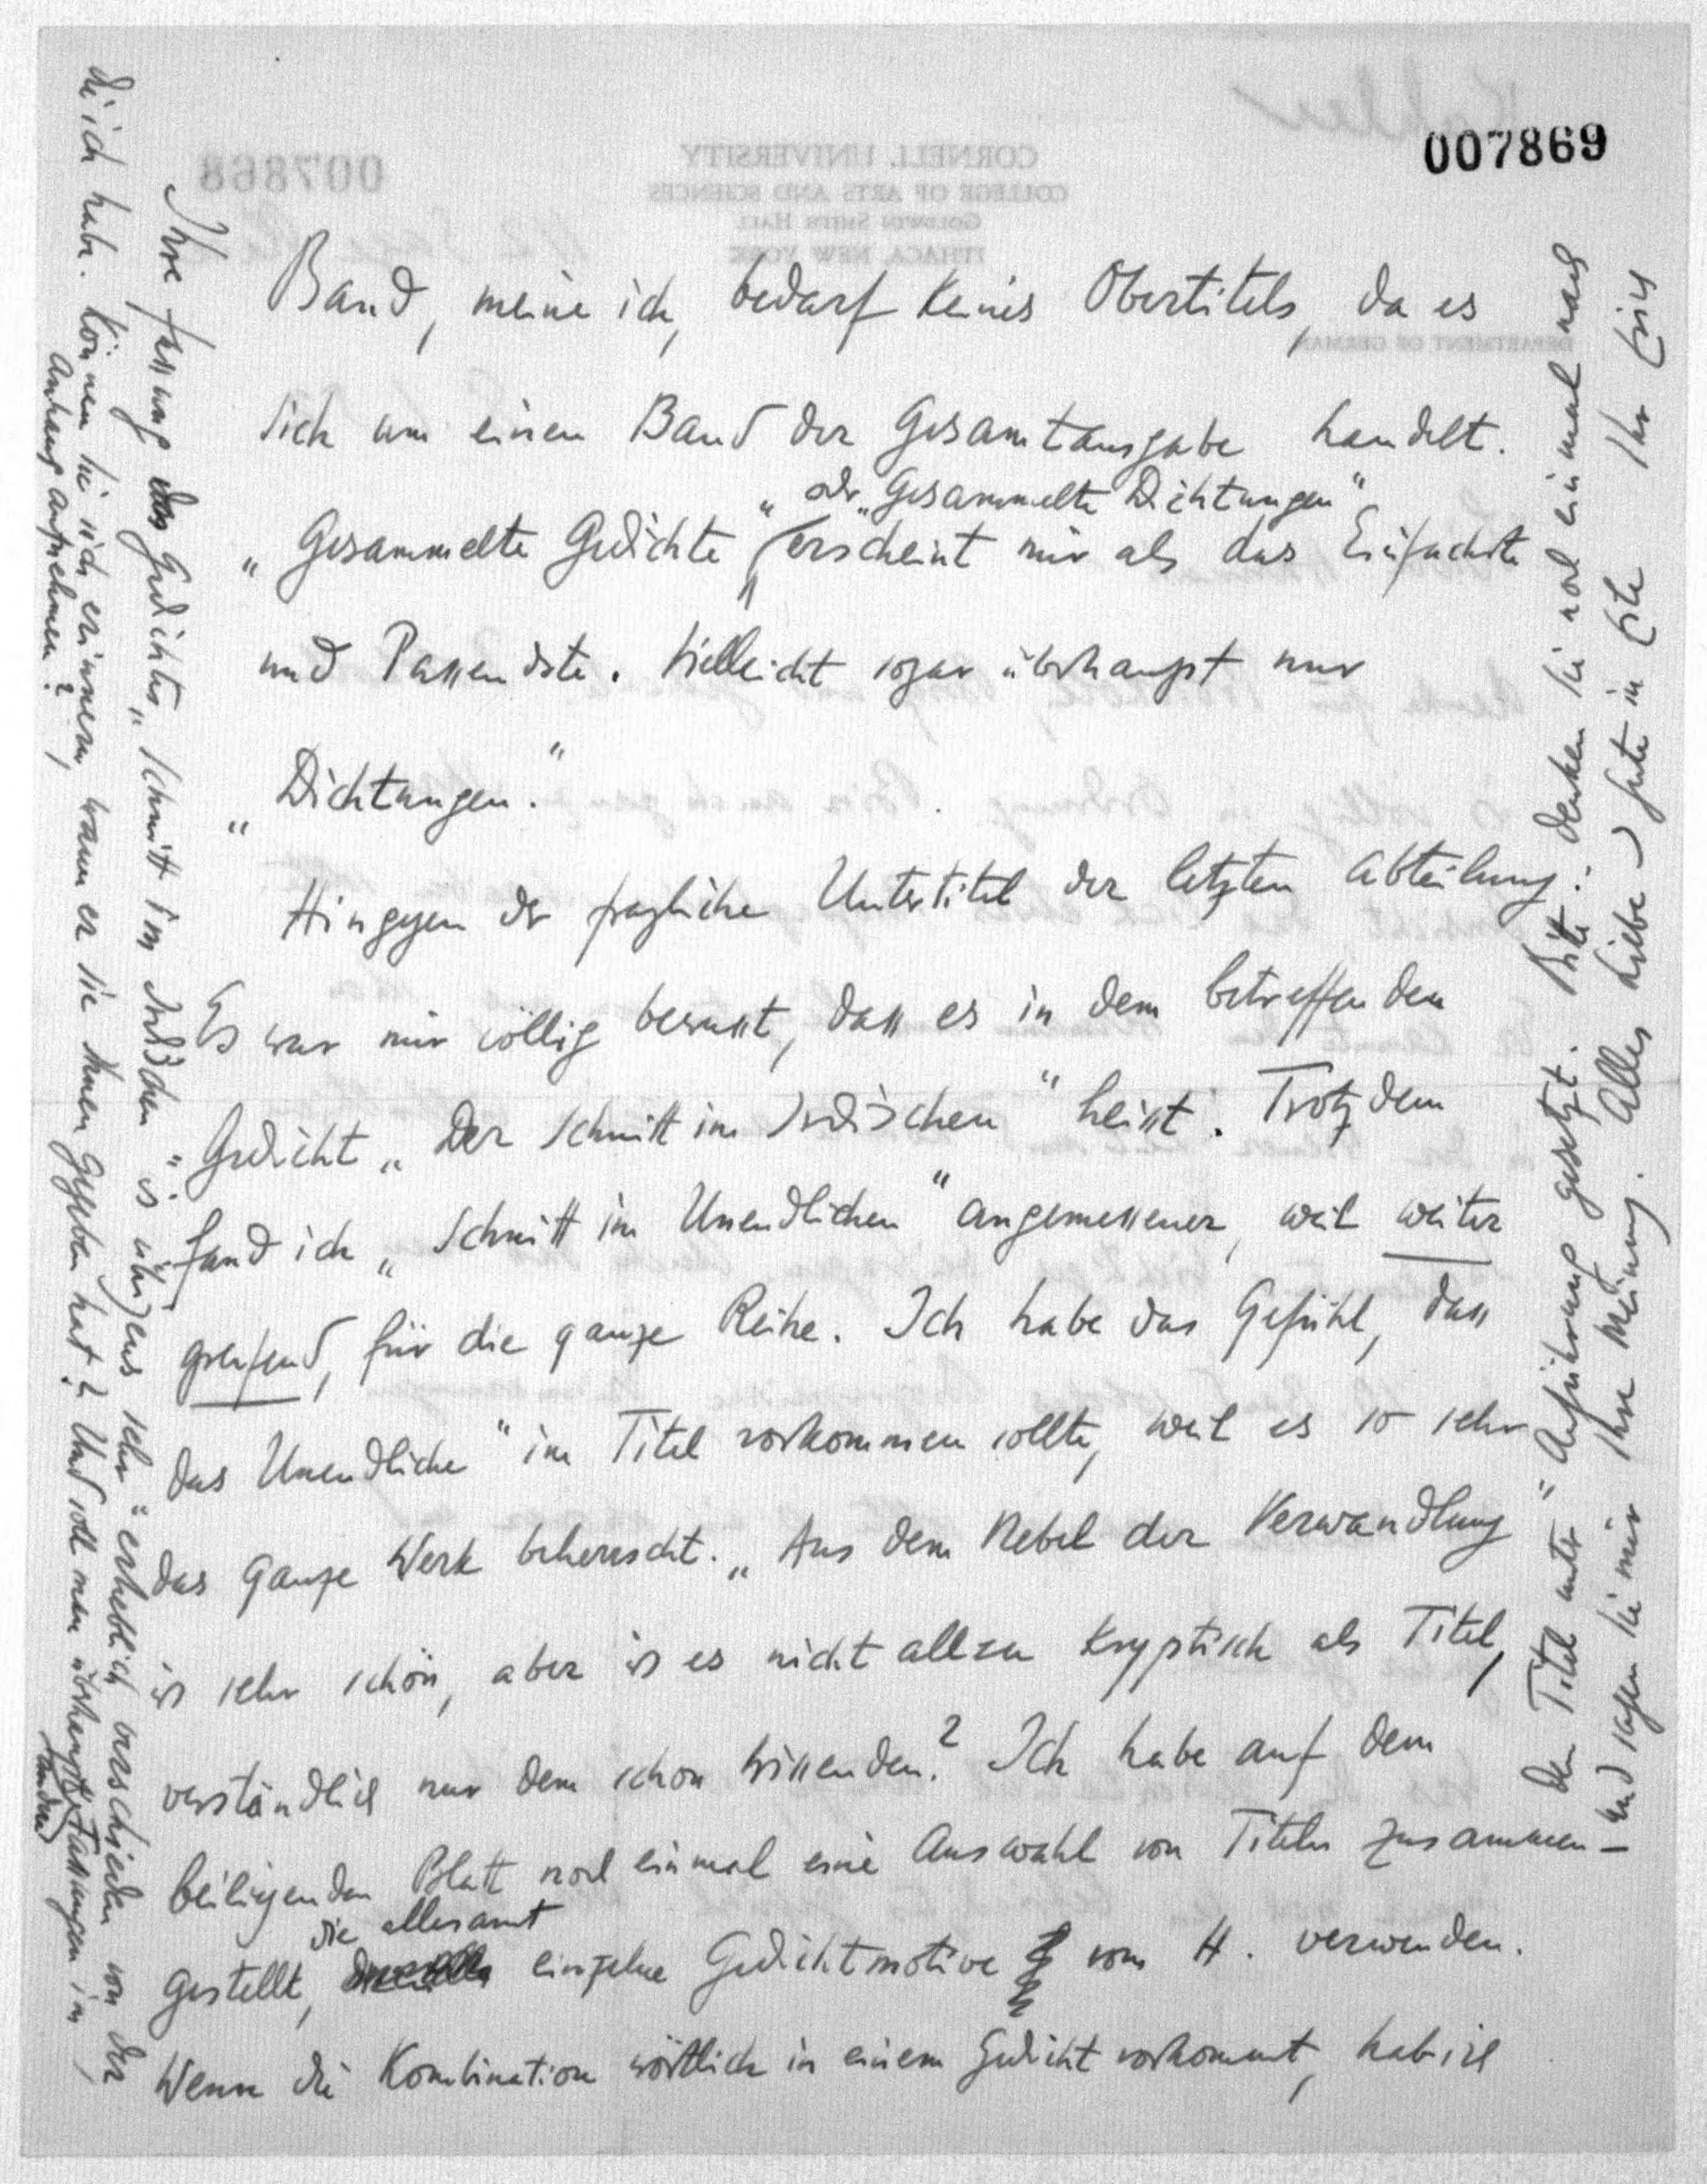 007869
Band, meine ich, bedarf keines Obertitels, da es
sich um einen Band der Gesamtausgabe handelt.
oder „Gesammelte Dichtungen"
„Gesammelte Gedichte" erscheint mir als das Einfachste
und Passendste. Vielleicht sogar überhaupt nur
„Dichtungen."
Hingegen der fragliche Untertitel der letzten Abteilung:
Es war mir völlig bewusst, dass es in dem betreffenden
Gedicht „Der Schnitt im Irdischen" heisst. Trotzdem
fand ich „Schnitt im Unendlichen" angemessener, weil weiter
greifend, für die ganze Reihe. Ich habe das Gefühl, dass
das Unendliche" im Titel vorkommen sollte, weil es so sehr
das ganze Werk beherrscht. „Aus dem Nebel der Verwandlung
ist sehr schön, aber ist es nicht allzu kryptisch als Titel,
verständlich nur dem schon Wissenden? Ich habe auf dem
beiliegenden Blatt noch einmal eine Auswahl von Titeln zusammen-
die allesamt
gestellt, einzelne Gedichtmotive von H. verwenden.
Wenn die Kombination wörtlich in einem Gedicht vorkommt, hab ich
den Titel unter " Anführung gesetzt. Bitte denken Sie noch einmal nach
und sagen Sie mir Ihre Meinung. Alles Liebe u Gute in Eile Ihr Erich
Ihre Fassung des Gedichtes „Schnitt im Irdischen" ist übrigens sehr " erheblich verschieden von der
die ich habe. Können Sie sich erinnern, wann er sie Ihnen gegeben hat? Und soll man überhaupt Fassungen im
Anhang aufnehmen?
CORNELL UNIVERSITY
COLLEGE OF ARTS AND SCIENCES
GOLDWIN SMITH HALL
ITHACA, NEW YORK
DEPARTMENT OF GERMAN
007868